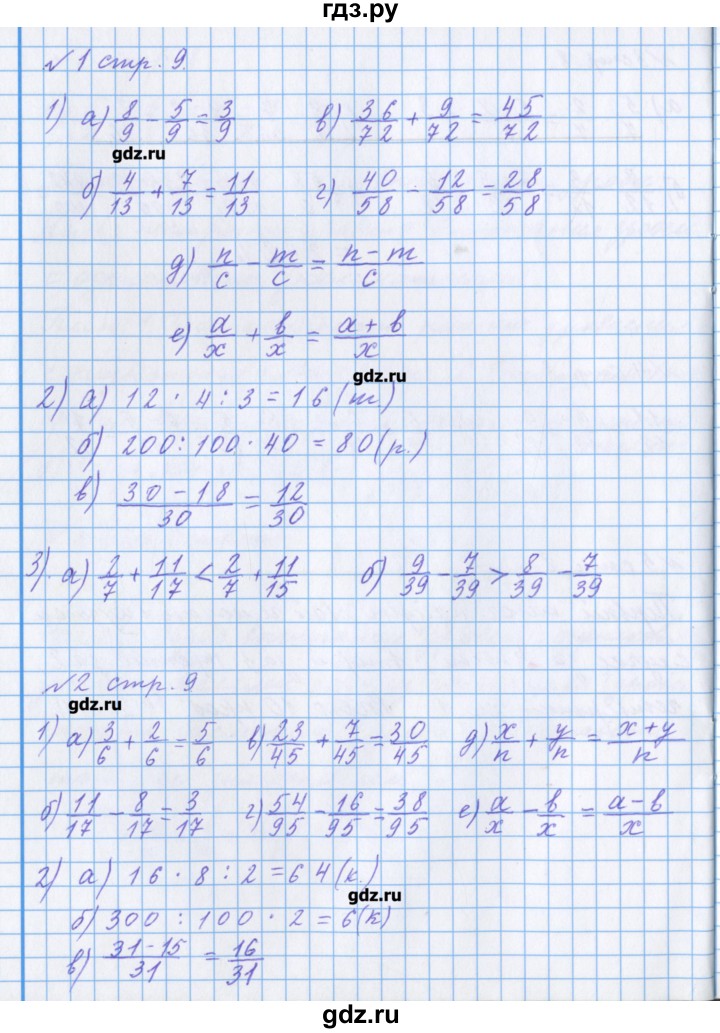 гдз.ру
№1 стр. 9.
1) а) 8/9 - 5/9 = 3/9 в) 36/72 + 9/72 = 45/72
gdz.ru
б) 4/13 + 7/13 = 11/13 г) 40/58 - 12/58 = 28/58
д) n/c - m/c = n-m/c
е) a/x + b/x = a+b/x
gdz.ru
2) а) 12 · 4 : 3 = 16 (т)
б) 200 : 100 · 40 = 80 (р.)
в) 30-18/30 = 12/30
3) а) 2/7 + 11/17 < 2/7 + 11/15 б) 9/39 - 7/39 > 8/39 - 7/39
№2 стр. 9
gdz.ru
1) а) 3/6 + 2/6 = 5/6 в) 23/45 + 7/45 = 30/45 д) x/n + y/n = x+y/n
б) 11/17 - 8/17 = 3/17 г) 54/95 - 16/95 = 38/95 е) a/x - b/x = a-b/x
2) а) 16 · 8 : 2 = 64 (к.)
gdz.ru
б) 300 : 100 · 2 = 6 (к)
в) 31-15/31 = 16/31
gdz.ru